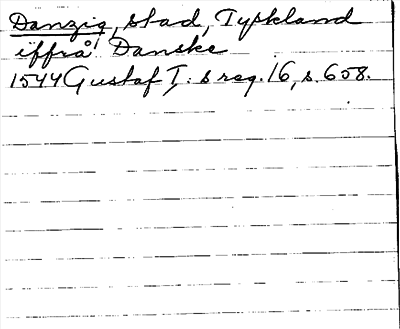 Danzig, stad, Tyskland
iffrå Danske
1544 Gustaf I:s reg. 16, s. 658.